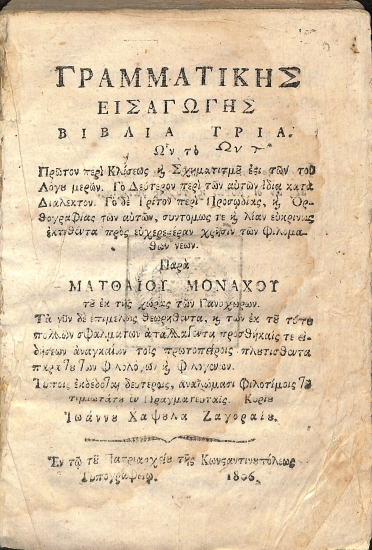 ΓΡΑΜΜΑΤΙΚΗΣ
ΕΙΣΑΓΩΓΗΣ
ΒΙΒΛΙΑ ΤΡΙΑ.
Ὧν τὸ Ὧν τὸ
Πρῶτον περὶ Κλίσεως ἢ Σχηματισμῦ ἐςι τῶν τοῦ
Λόγου μερῶν. Τὸ Δεύτερον περὶ τῶν αὐτῶν ἰδίᾳ κατὰ
Διάλεκτον. Τὸ δὲ Τρίτον περὶ Προσῳδίας, ἢ Ὀρ-
θογραφίας τῶν αὐτῶν, συντόμως τε ἢ λίαν εὐκρινῶς
ἐκτηθέντα πρὸς εὐχερεςέραν χρῆσιν τῶν φιλομα-
θῶν νέων.
Παρὰ
ΜΑΤΘΑΙΟΥ ΜΟΝΑΧΟΥ
τοῦ ἐκ τῆς χώρας τῶν
Τὰ νῦν δὲ ἐπιμελῶς θεωρηθέντα, ἢ τῶν ἐκ τοῦ τύπου
πολλῶν σφαλμάτων ἀπαλλαγέντα προσθήκαις τε εἰ-
δήσεων ἀναγκαίων τοῖς πρωτοπείροις πλουτισθέντα
παρὰ τῶν Φιλολόγων ἢ φιλογενῶν.
Τύποις ἐκδεδόται δευτέροις, ἀναλώμασι φιλοτίμοις τοῦ
τιμιωτάτου ἐν Πραγματευταῖς. Κυρίου
Ἰωάννου Χαψούλα Ζαγοραίου.
Ἐν τῷ τοῦ Πατριαρχείου τῆς Κωνσταντινουπόλεως
Τυπογραφείῳ. 1806.